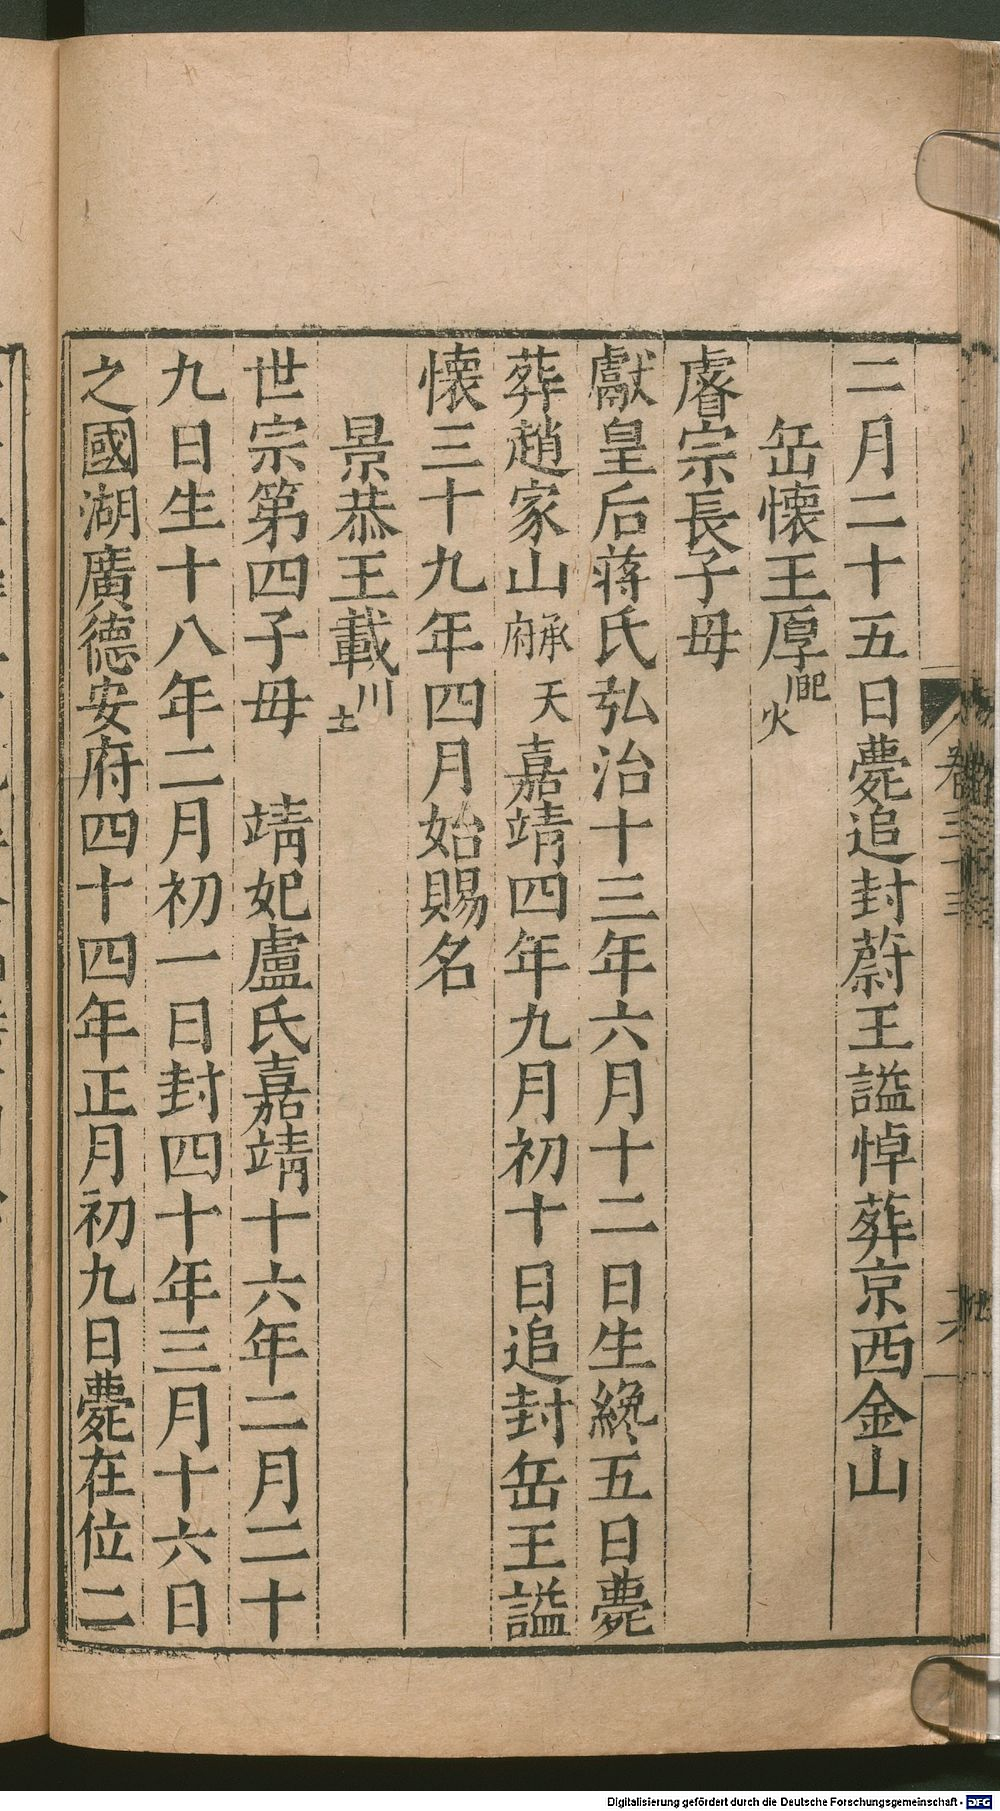 二月二十五日薨追封蔚王謚悼葬京西金山
岳懷王厚熙
睿宗長子母
獻皇后蔣氏弘治十三年六月十二日生纔五日薨
葬趙家山承天府嘉靖四年九月初十日追封岳王謚
懷三十九年四月始賜名
景恭王載圳
世宗第四子母 靖妃盧氏嘉靖十六年二月二十
九日生十八年二月初一日封四十年三月十六日
之國湖廣德安府四十四年正月初九日薨在位二
卷三十三
Digitalisierung gefördert durch die Deutsche Forschungsgemeinschaft - DFG